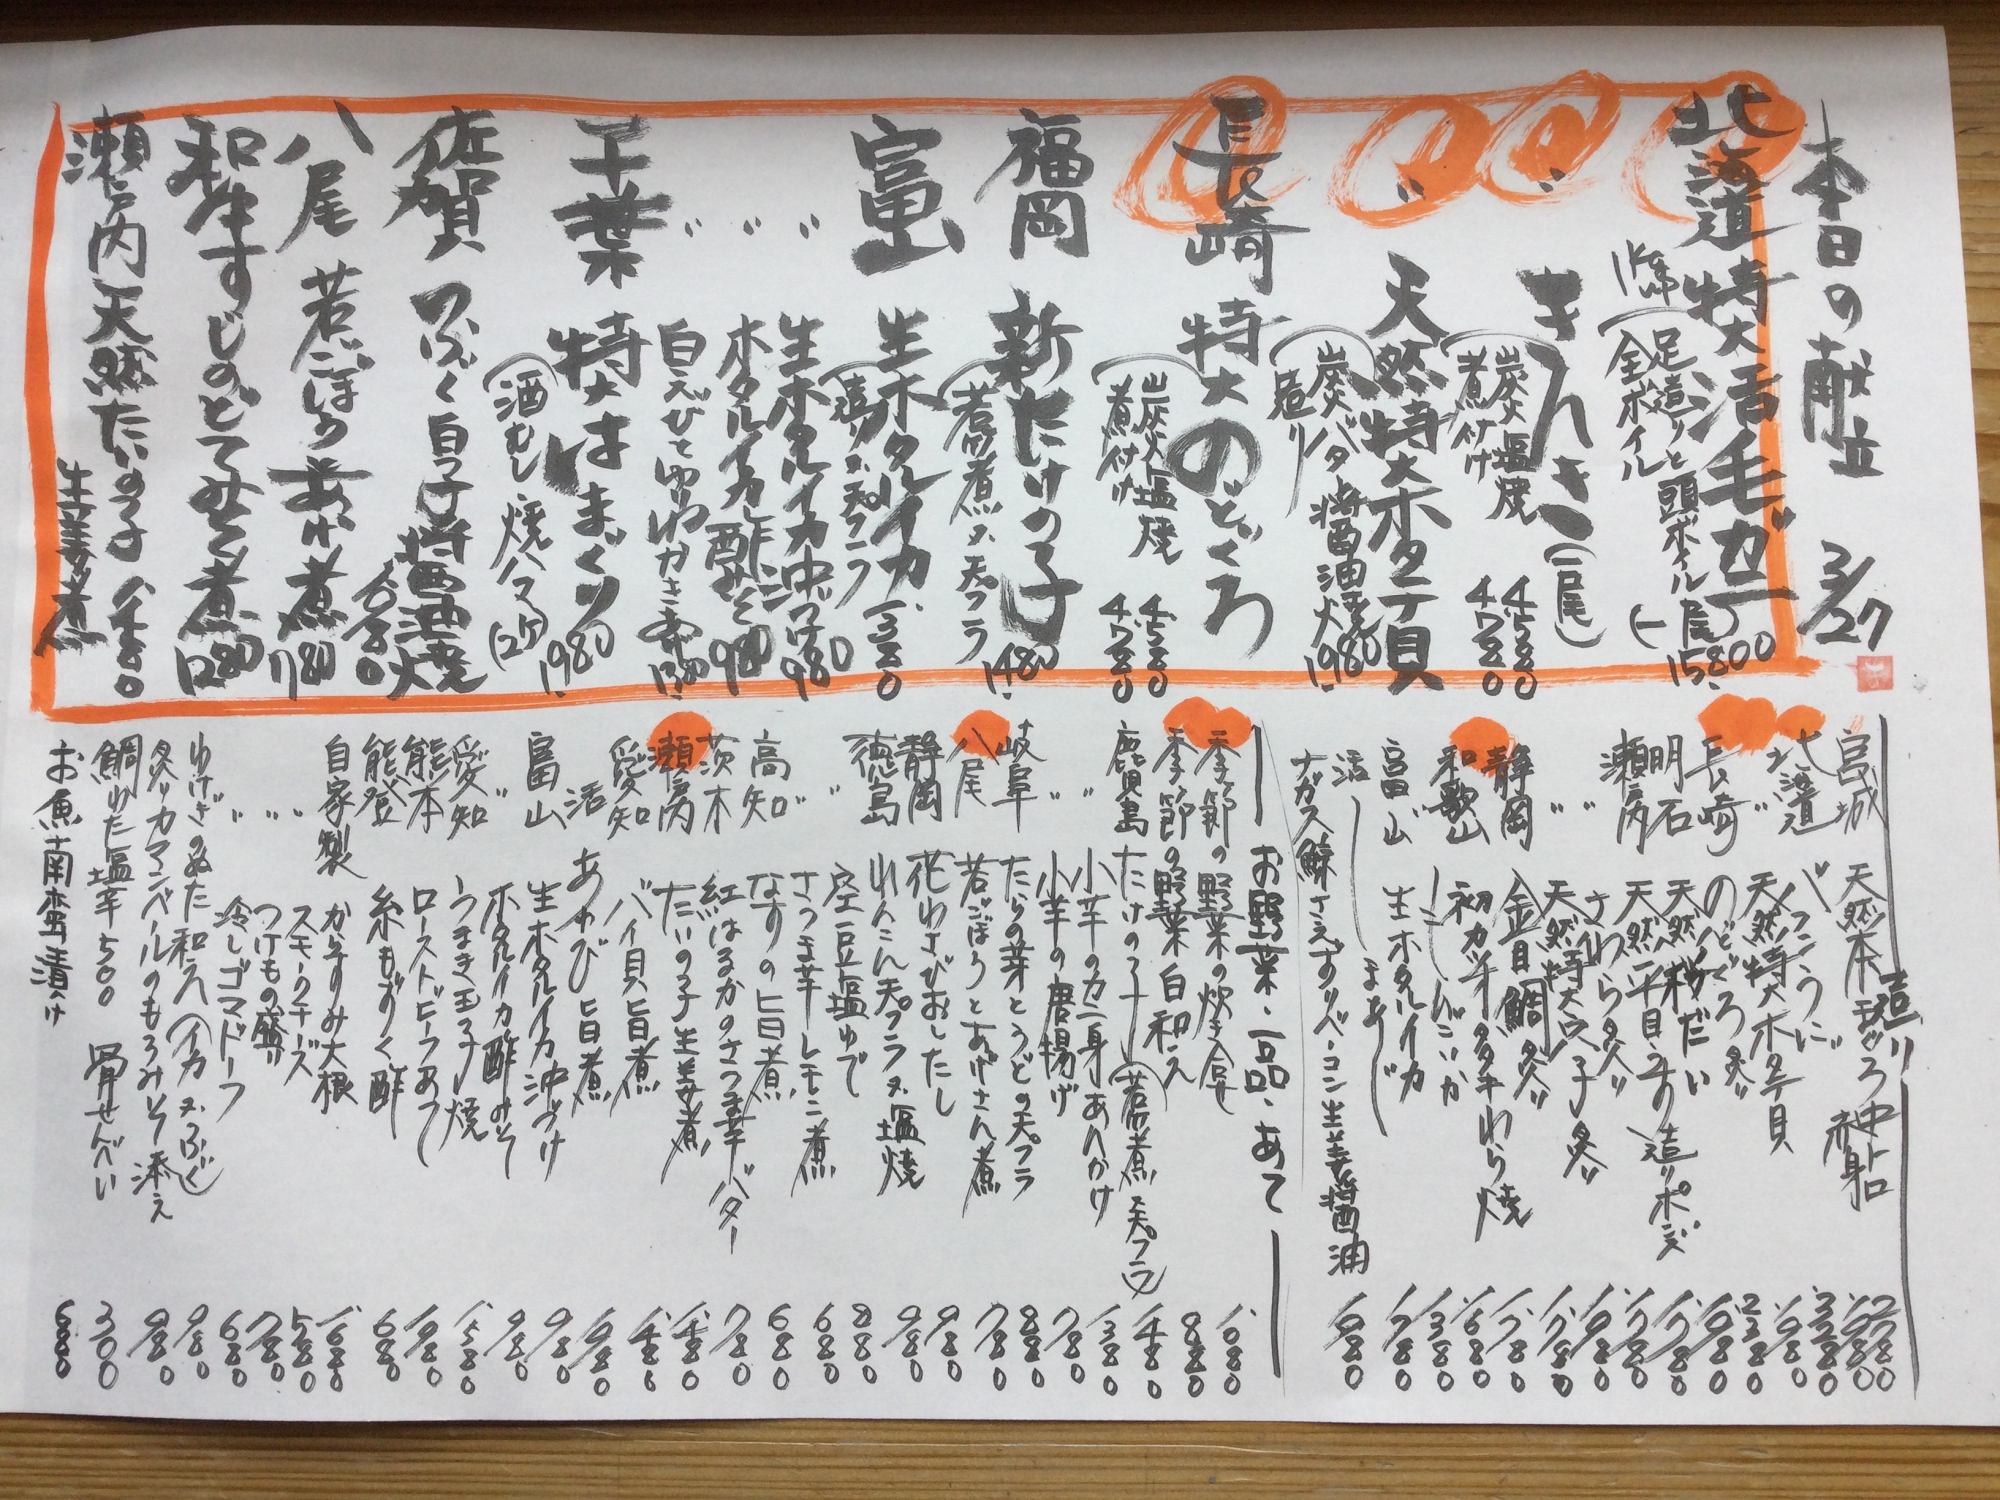 本日の献立 3/27
北海道 特大活毛ガニ
1k弱
足造りと頭ボイル
全ボイル
(一尾) 15,800
〃 きんき (一尾)
炭火塩焼 4580
煮付け 4780
〃 天然特大ホタテ貝
炭火バター醤油焼 1,980
造り
長崎 特大のどぐろ
炭火塩焼 4580
煮付け 4780
福岡 新たけの子 1,480
若煮 又 天プラ
富山 生ホタルイカ 1380
造り 又 天プラ
〃 生ホタルイカ沖づけ 980
〃 ホタルイカ酢みそ 980
〃 白えび
千葉 特大はまぐり 1,980
酒むし 焼ハマ (2ケ)
佐賀 ふぐ白子醤油焼
八尾 若ごぼうあわ煮 780
和牛すじのどてみそ煮 1280
瀬戸内天然たいの子
生姜煮
造り
宮城 天然本まぐろ 中トロ 2780
赤身 1980
北海道 バフンうに 3280
〃 天然特大ホタテ貝 1980
長崎 のどぐろ炙り 2380
明石 天然桜だい 1980
瀬戸内 天然平貝 造りポン酢 1780
〃 さわら炙り 1980
静岡 金目鯛炙り 1780
和歌山 初カツオタタキわら焼 1680
富山 生ホタルイカ 1380
活 まあじ 1780
ナガス鯨さえずりベーコン生姜醤油 1980
お野菜・一品・あて
季節の野菜の炊き合せ 1080
季節の野菜白和え 880
鹿児島 たけの子(若煮 又 天プラ) 1480
〃 小芋のカニ身あんかけ 1380
〃 小芋の唐揚げ 780
岐阜 たらの芽とうどの天プラ 880
八尾 若ごぼうとあげさん煮 780
静岡 花わさびおしたし 980
徳島 れんこん天プラ又塩焼 980
空豆塩ゆで 880
〃 さつま芋レモン煮 680
高知 なすの旨煮 680
茨木 紅はるかのさつま芋バター 780
瀬戸内 たいの子生姜煮 1480
愛知 バイ貝旨煮 1480
活 あわび旨煮 1980
富山 生ホタルイカ沖づけ 980
〃 ホタルイカ酢みそ 980
愛知 うまき玉子焼 1580
熊本 ローストビーフあて 1980
能登 糸もずく酢 680
自家製 からすみ大根 1680
〃 スモークチーズ 580
〃 つけもの盛り 780
〃 冷しゴマドーフ 680
ねぎのぬた和え(イカ又ふぐ) 980
炙りカマンベールのもろみそ添え 980
鯛わた塩辛 500 骨せんべい 300
お魚南蛮漬け 680